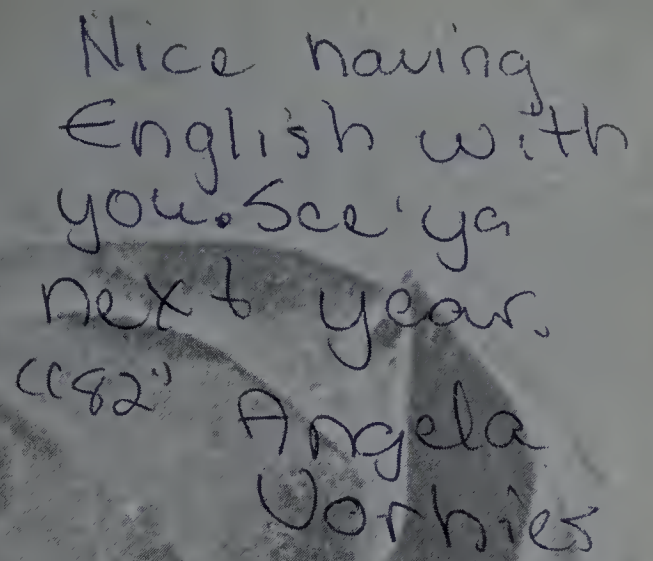 Nice having
English with
you. See ya
next year.
"82"
Angela
Vorhies